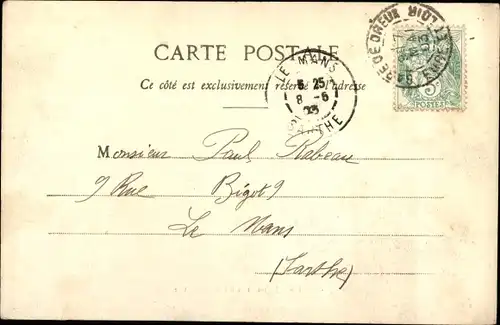 CARTE POSTALE
Ce côté est exclusivement réservé à l'adresse
LE MANS
5 25
8 -6
03
SARTHE
GARE DE DREUX
EURE ET LOIR
5
POSTES
Monsieur Paul Rabeau
9 Rue Bigot 9
Le Mans
(Sarthe)